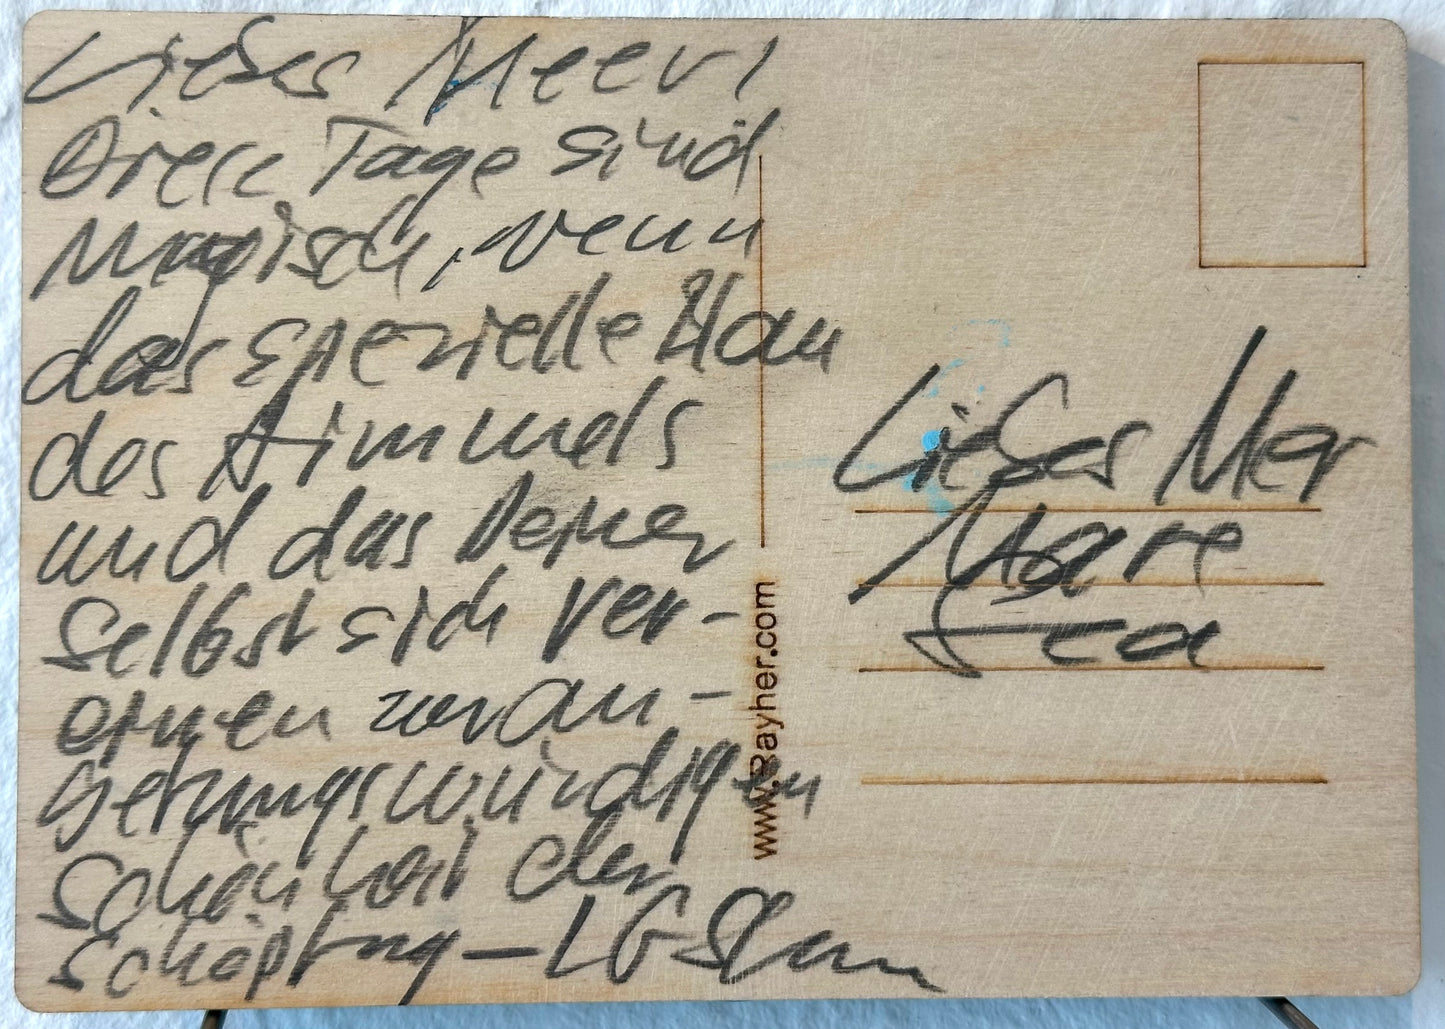 Liebes Meer!
Diese Tage sind
Magisch, wenn
das spezielle Blau
des Himmels
und das Deiner
Selbst sich ver-
einen zur an-
Schönheit der
Schöpfung – LG
Liebes Meer
Mare
www.Rayher.com